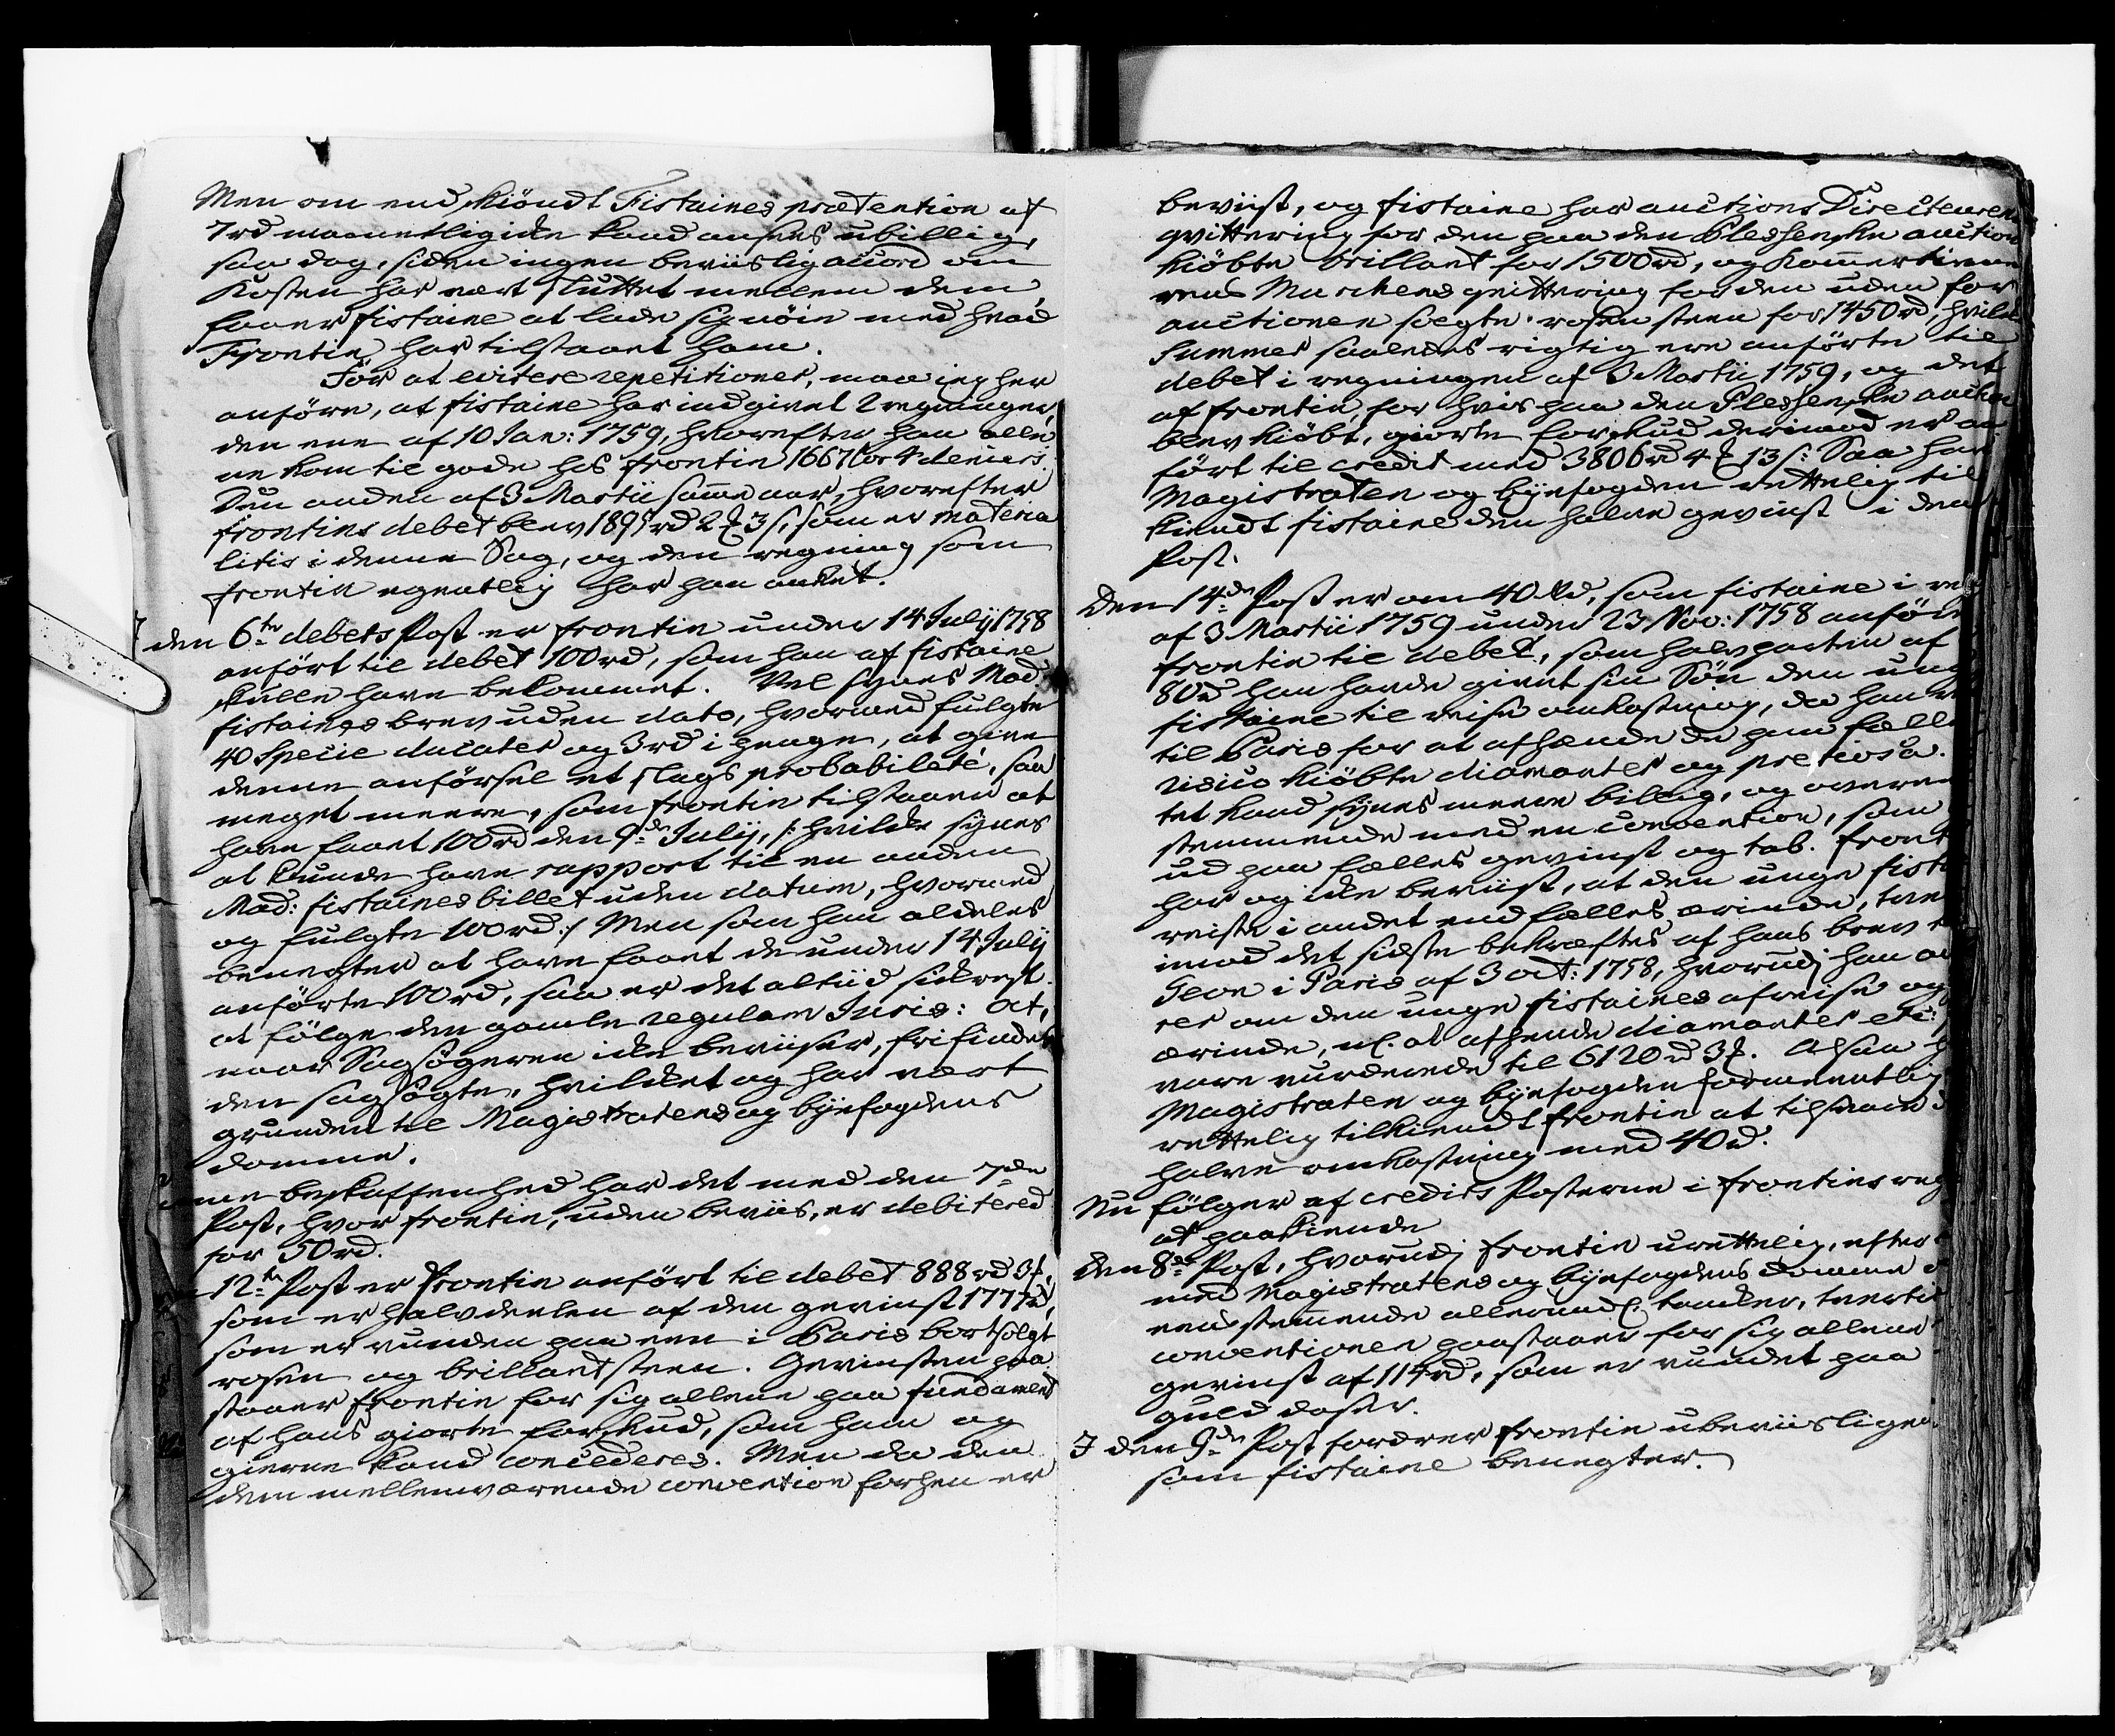 Men om end skiöndt Fistaines prætention af
7 rd maanetligiden kand ansees ubillig,
saa dog, siden ingen beviislig accord om
Kosten har vært sluttet mellem dem,
faaer fistaine at lade sig nöie med hvad
Frontin har tilstaaet ham.
For at evitere repetitioner, maa jeg her
anföre, at fistaine har indgivet 2 regninger,
den ene af 10 Jan: 1759, hvorefter han alle
ne kom til gode hos frontin 1667 or 4 deniers.
Den anden af 3 Martii samme aar, hvorefter
frontins debet blev 1895 rd 2 ₰ 3 s, som er materia
litis i denne Sag, og den regning som
frontin egentlig har paa anket.
J den 6te debets Post er frontin under 14 Julij 1758
anfört til debet 100 rd, som han af fistaine
skulle have bekommet. Vel synes Mad:
fistaines brev uden dato, hvormed fulgte
40 Specie ducater og 3 rd i penge, at give
denne anförsel et slags probabileté, saa
meget meere, som frontin tilstaaer at
have faaet 100 rd den 9de Julij, /: hvilke synes
at kunde have rapport til en anden
Mad: fistaines billet uden datum, hvormed
og fulgte 100 rd :/ Men som han aldeles
benegter at have faaet de under 14 Julij
anförte 100 rd, saa er det altiid sikrest
at fölge den gamle regulam Juris: At,
naar Sagsögeren icke beviiser, frifindes
den sagsögte, hvilcket og har vært
grunden til Magistratens og byefogdens
domme.
me beskaffenhed har det med den 7de
Post, hvor frontin, uden beviis, er debitered
for 50 rd.
12te Post er Frontin anfört til debet 888 rd 3 ₰,
som er halvdeelen af den gevinst 1777 rd,
som er vunden paa een i Paris bortsolgt
rosen og brillant steen. Gevinsten paa
staaer frontin for sig allene paa fundament
af hans giorte forskud, som ham og
gierne kand concederes. Men da den
dem mellemværende convention forhen er
beviist, og fistaine har auctions Directeurens
qvittering for den paa den Plessenske auction
kiöbte brillant for 1500 rd, og Kammertiene
rens Murchens qvittering for den uden for
auctionen solgte rosen steen for 1450 rd, hvilke
Summer saaledes rigtig ere anförte til
debet i regningen af 3 Martii 1759, og det
af frontin, for hvis paa den Plessenske auction
blev kiöbt, giorte forskud derimod er an
fört til credit med 3806 rd 4 ₰ 13 s: Saa har
Magistraten og byefogden rettelig til
kiendt fistaine den halve gevinst i den
Post.
Den 14de Post er om 40 Rd, som fistaine i re
af 3 Martii 1759 under 23 Nov: 1758 anförer
frontin til debet, som halvparten af
80 rd han havde givet sin Sön den unge
fistaine til reise omkostning, da han re
til Paris for at afhænde de paa fælles
risico kiöbte diamanter og pretiosa.
tet kand synes meere billig, og overeen
stemmende med en convention, som
ud paa fælles gevinst og tab. Front
har og icke beviist, at den unge fista
reiste i andet end fælles ærinde, tver
imod det sidste bekræftes af hans brev
Jean i Paris af 3 oct: 1758, hvorudj han
rer om den unge fistaines afreise og
ærinde, nl. at afhende diamanter etc:
vare vurderede til 6120 rd 3 ₰. Alsaa
Magistraten og byefogden formeentlig
rettelig tilkiendt frontin at tilsvare
halve omkostning med 40 rd.
Nu fölger af credits Posterne i frontins reg
at paakiende
Den 8de Post, hvorudj frontin urettelig, efter
med Magistratens og byefogdens domme
eensstemmende allerund: tancker, tvertim
conventionen paastaaer for sig allene
gevinst af 114 rd, som er vundet paa
guld daser.
I den 9de Post fordrer frontin ubeviislige
som fistaine benegter.